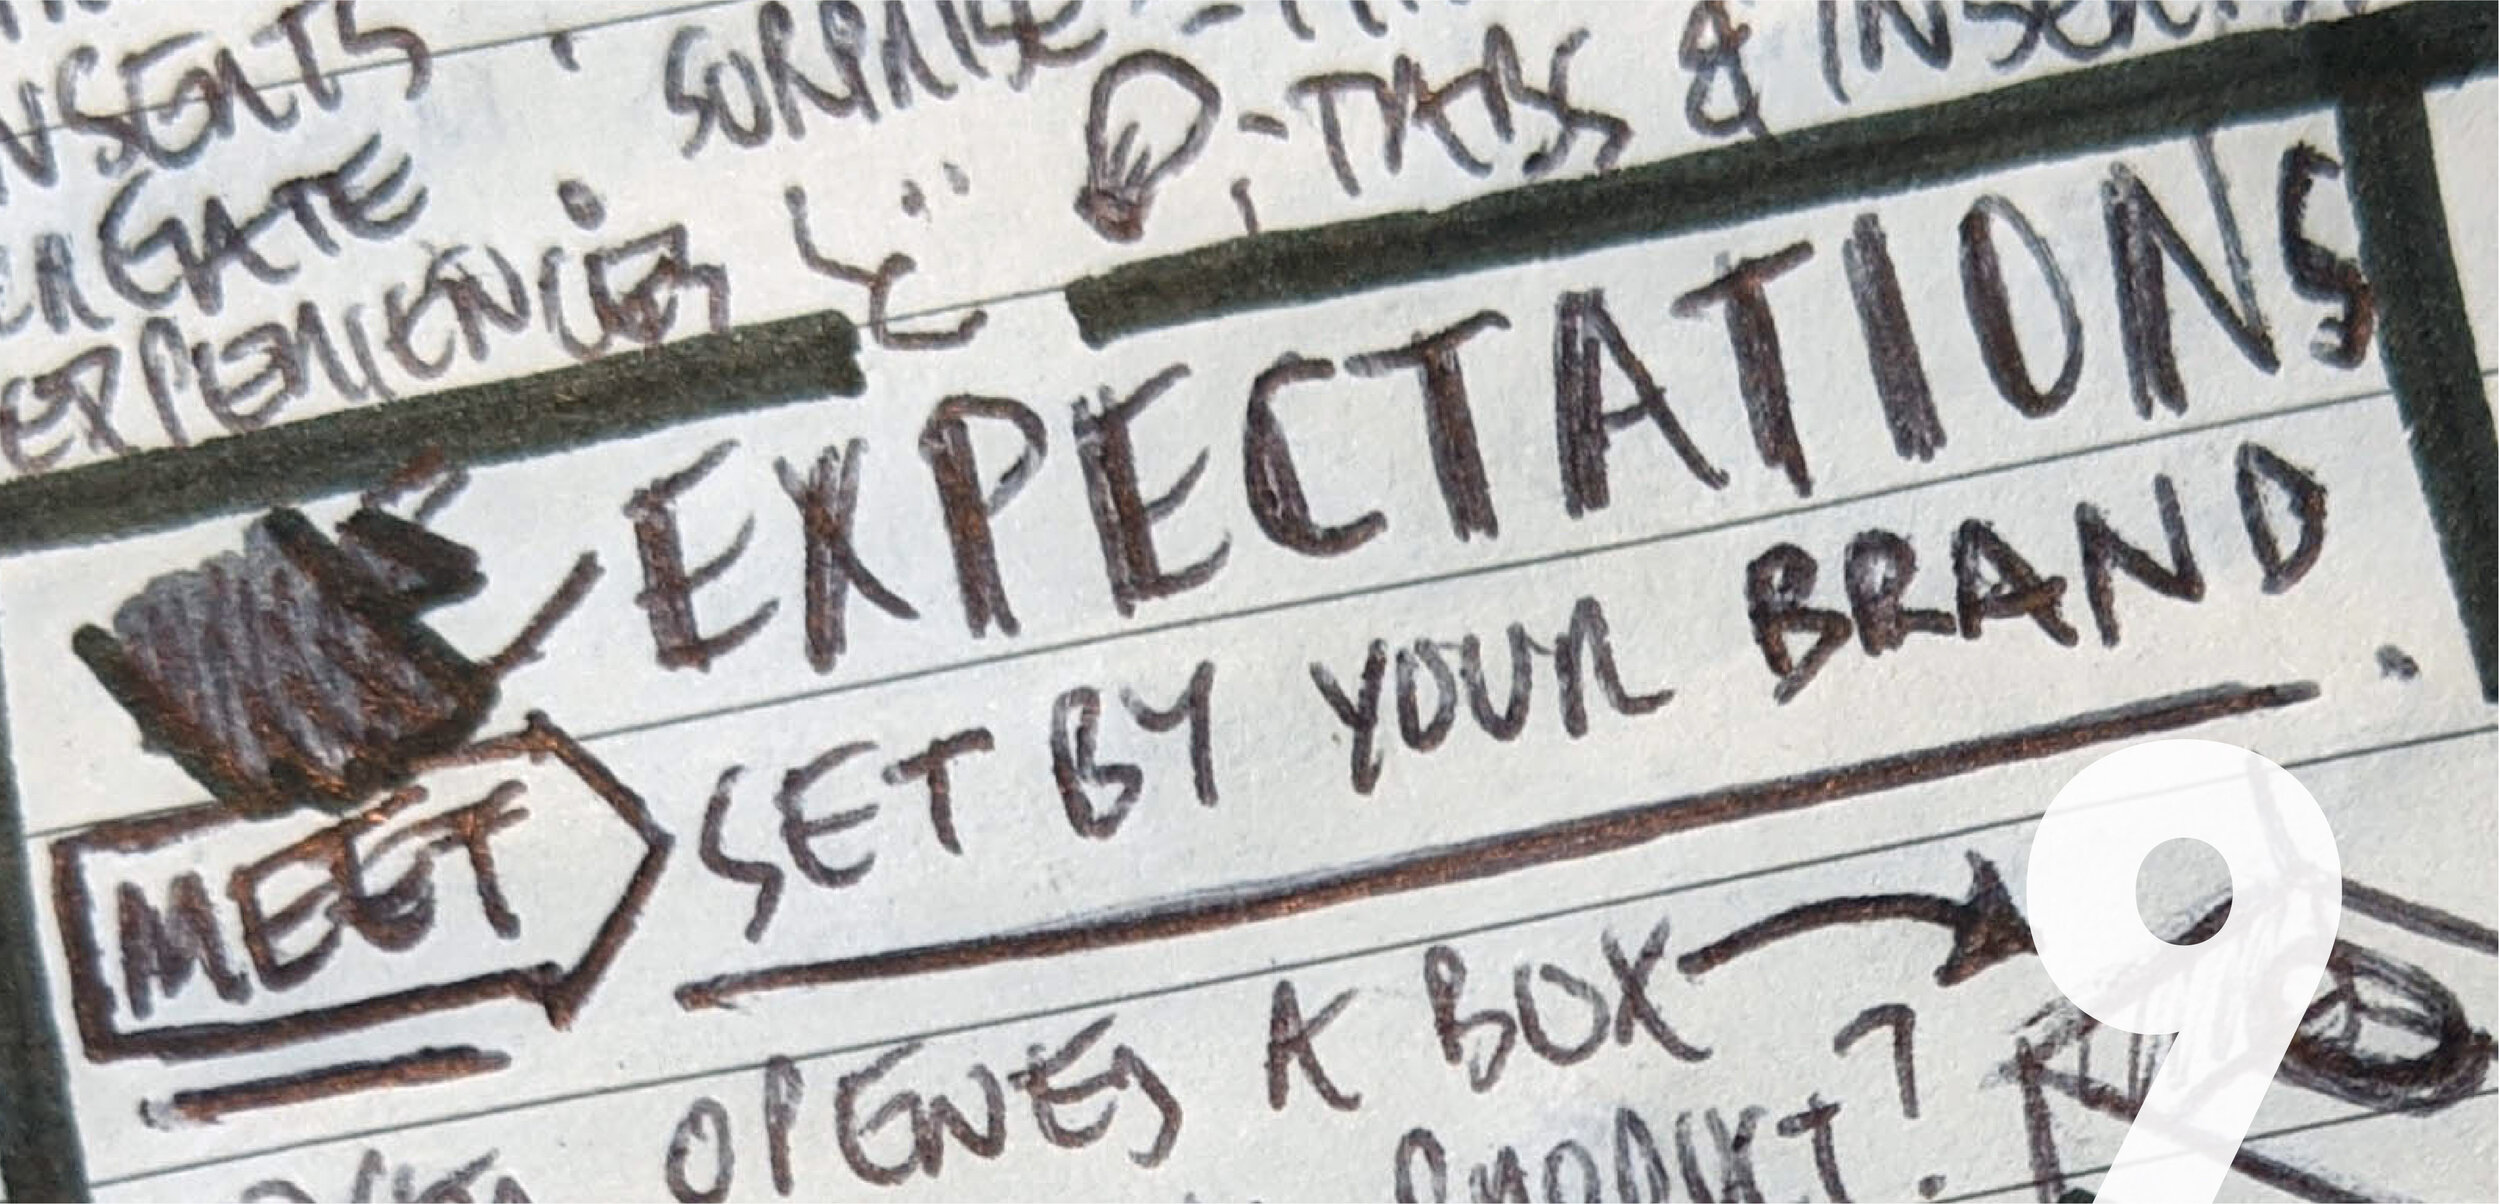 INSERTS · SURPRISE
CREATE - TABS & INSERT
EXPERIENCES
EXPECTATIONS
MEET SET BY YOUR BRAND.
OPENES A BOX
PRODUCT?
9